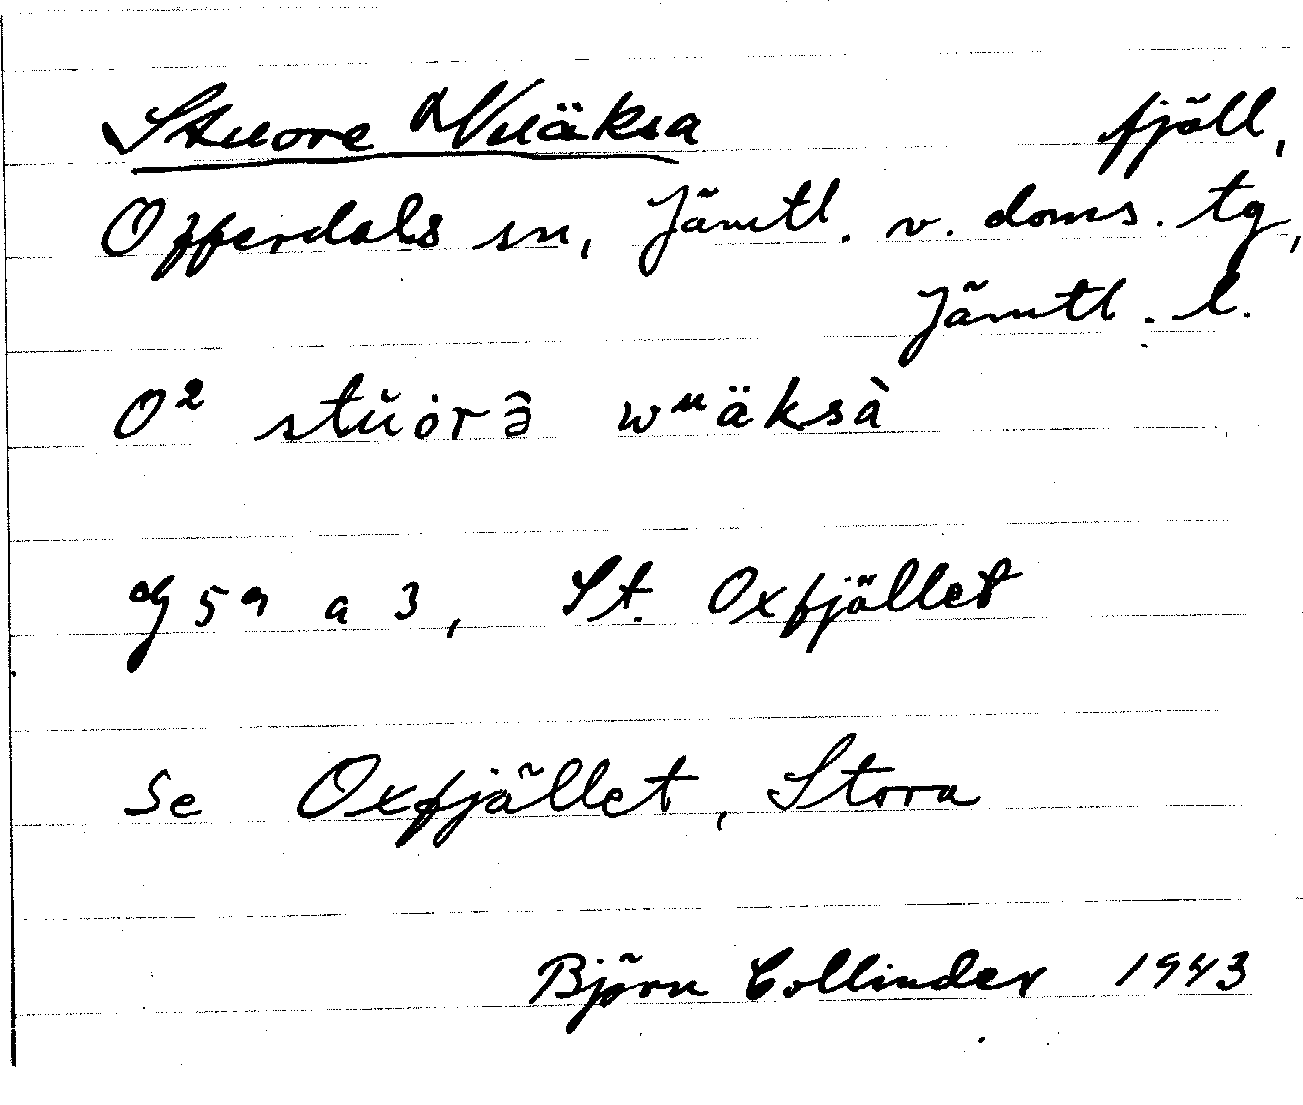 Stuore Vuäksa fjäll,
Offerdals sn, Jämtl. v. doms. tg,
Jämtl. l.
O² stŭȯrə̂ wᵘäksà
g 59 a 3, St. Oxfjället
Se Oxfjället, Stora
Björn Collinder 1943